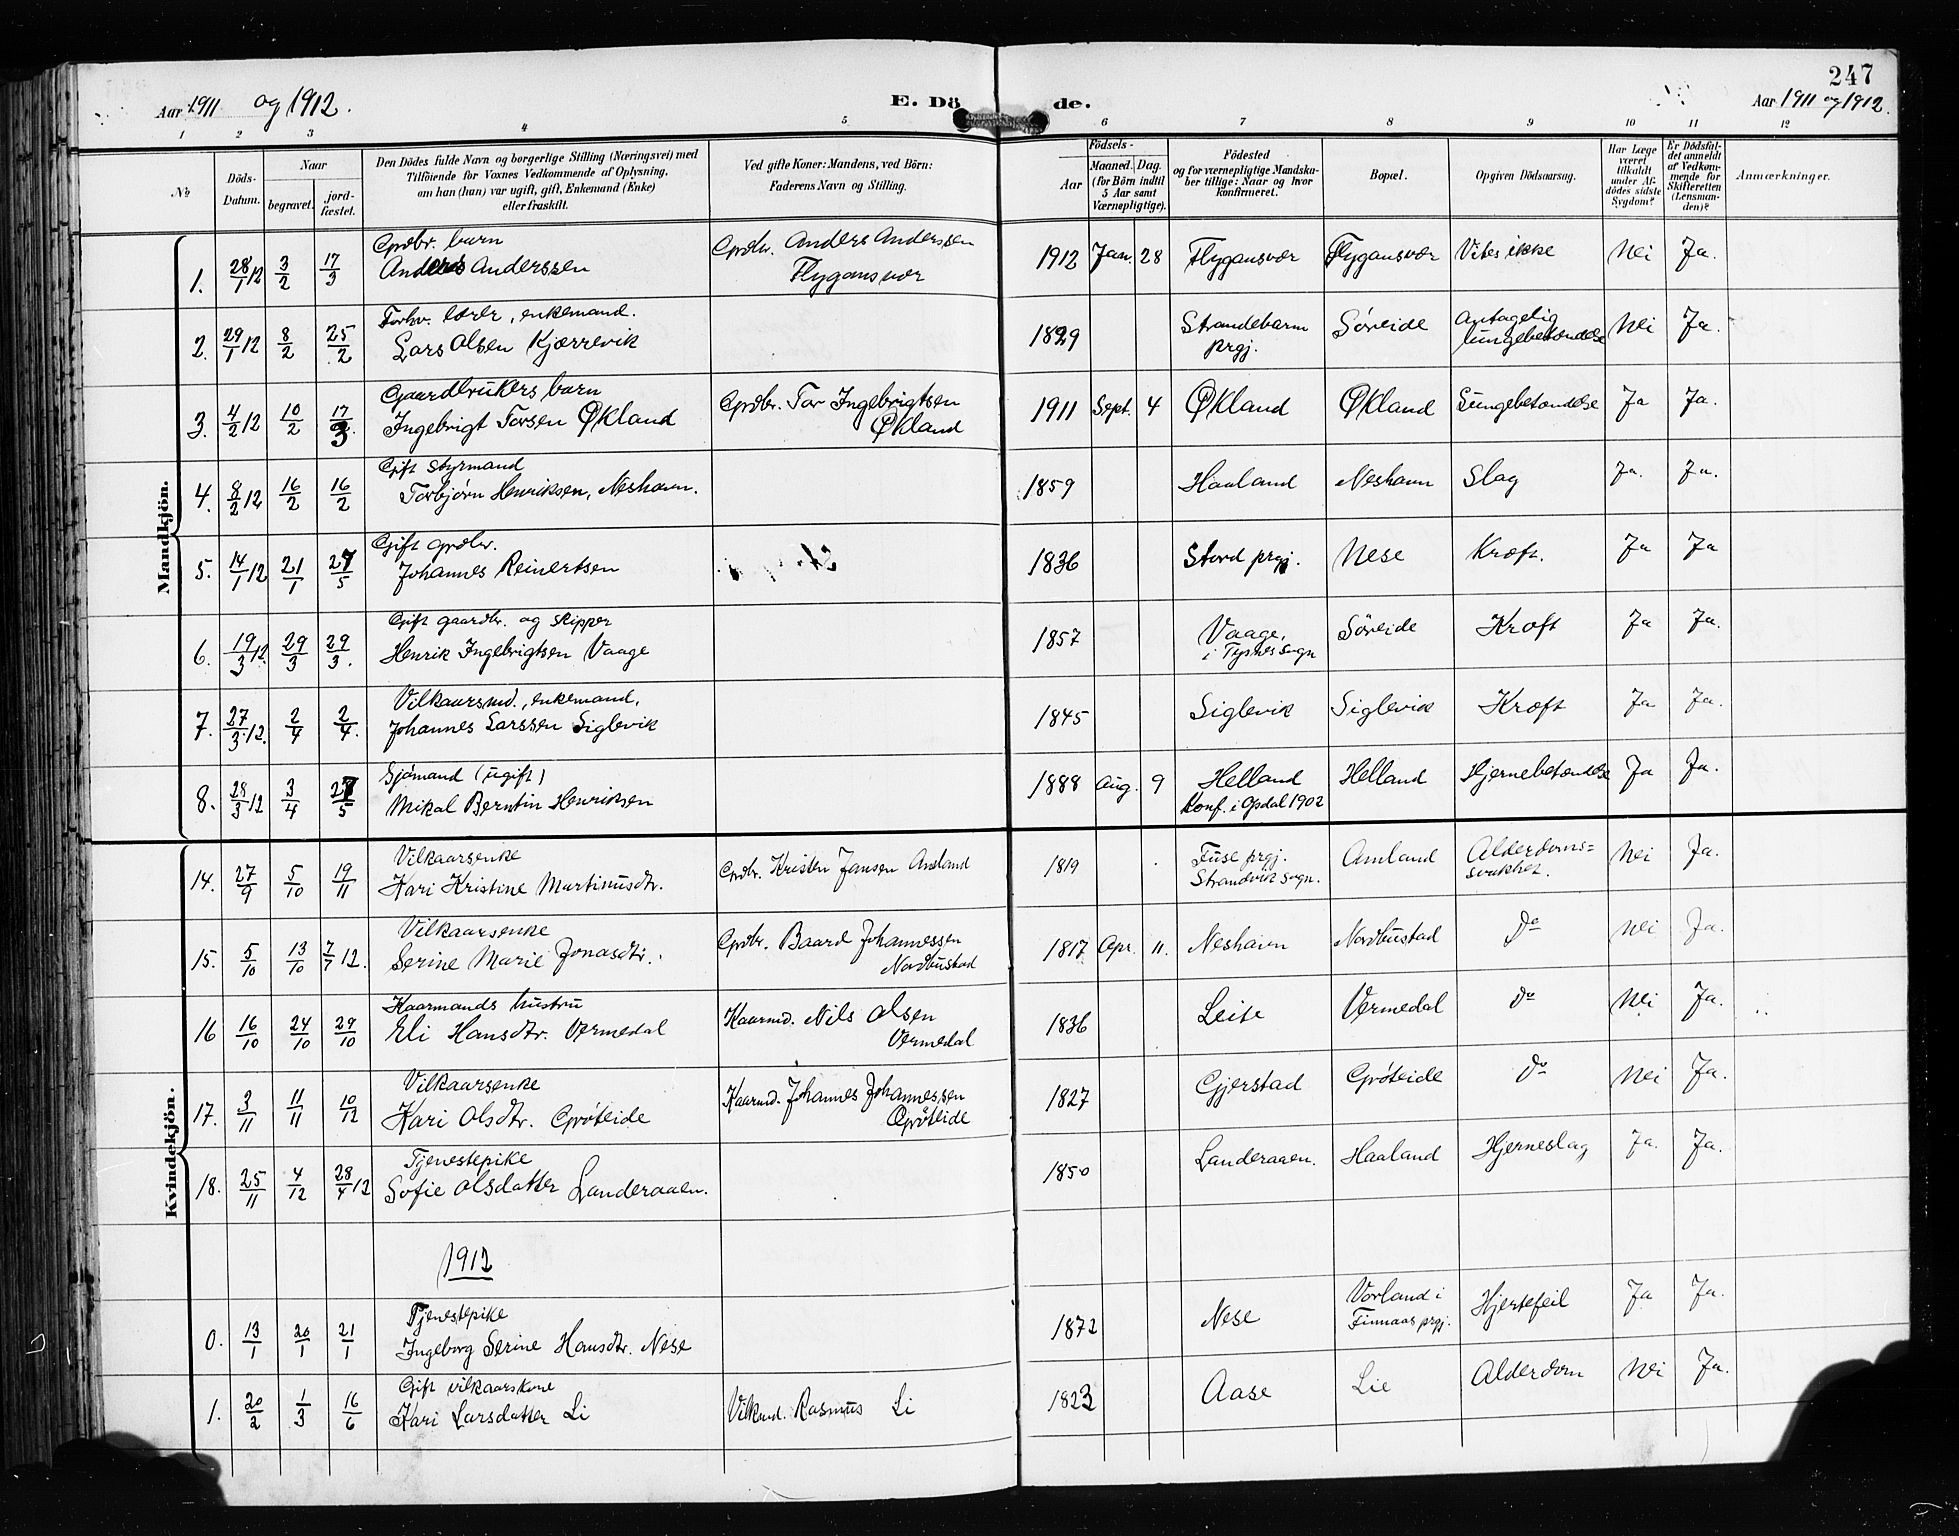 247
Aar 1911 og 1912. E. Dö de. Aar 1911 og 1912.
1 2 3 4 5 6 7 8 9 10 11 12
No
Döds-Datum.
Naar
begravet.
jord-fæstet.
Den Dödes fulde Navn og borgerlige Stilling (Næringsvei) med
Tilföiende for Voxnes Vedkommende af Oplysning,
om han (hun) var ugift, gift, Enkemand (Enke)
eller fraskilt.
Ved gifte Koner: Mandens, ved Börn:
Faderens Navn og Stilling.
Födsels-
Aar
Maaned. Dag.
(for Börn indtil
5 Aar samt
Værnepligtige).
Födested
og for værnepligtige Mandska-
ber tillige: Naar og hvor
konfirmeret.
Bopæl.
Opgiven Dödsaarsag.
Har Læge
været
tilkaldt
under Af-
dödes sidste
Sygdom?
Er Dödsfal-
det anmeldt
af Vedkom-
mende for
Skifteretten
(Lensman-
den)?
Anmærkninger.
Mandkjön.
Grdbr. barn Grdbr. Anders Anderssen
1. 28/1 12 3/2 17/3 Anders Anderssen Flygansvær 1912 Jan. 28 Flygansvær Flygansvær Vites ikke Nei Ja.
Forhv. lærer, enkemand.
2. 29/1 12 8/2 25/2 Lars Olsen Kjærrevik 1829 Strandebarm prgj. Søreide Antagelig lungebetændelse Nei Ja.
Gaardbrukers barn Grdbr. Tor Ingebrigtsen
3. 4/2 12 10/2 17/3. Ingebrigt Torsen Økland Økland 1911 Sept. 4 Økland Økland Lungebetændelse Ja Ja.
Gift styrmand
4. 8/2 12 16/2 16/2 Torbjørn Henriksen, Neshavn. 1859 Haaland Neshavn Slag Ja. Ja.
Gift grdbr.
5. 14/1 12 21/1 27/5 Johannes Reinertsen 1836 Stord prgj. Nese Kræft. Ja Ja
Gift gaardbr. og skipper
6. 19/3 12. 29/3 29/3. Henrik Ingebrigtsen Vaage 1857 Vaage, i Tysnes sogn Søreide Kræft Ja Ja.
Vilkaarsmd., enkemand,
7. 27/3 12. 2/4 2/4. Johannes Larssen Siglevik 1845 Siglevik Siglevik Kræft Ja Ja.
Sjømand (ugift)
8. 28/3 12 3/4 27/5 Mikal Berntin Henriksen 1888 Aug. 9 Helland Konf. i Opdal 1902 Helland Hjernebetændelse Ja Ja.
Kvindekjön.
Vilkaarsenke
14. 27/9 5/10 19/11 Kari Kristine Martinusdtr. Grdbr. Kristen Jansen Amland 1819 Fuse prgj. Strandvik sogn. Amland Alderdoms= svakhet. Nei Ja.
Vilkaarsenke Grdbr. Baard Johannessen
15. 5/10 13/10 7/7 12. Serine Marie Jonasdtr. Nordbustad 1817 Apr. 11. Neshavn Nordbustad do Nei Ja.
Kaarmands hustru Kaarmd. Nils Olsen
16 16/10 24/10 29/10 Eli Hansdtr. Vermedal Vermedal 1836 Leite Vermedal do Nei Ja.
Vilkaarsenke Kaarmd. Johannes Johannessen
17. 3/11 11/11 10/12 Kari Olsdtr. Gröteide Gröteide 1827 Gjerstad Gröteide do Nei Ja.
Tjenestepike
18. 25/11 4/12 28/4 12 Sofie Olsdatter Landeraaen. 1850 Landeraaen. Haaland Hjerneslag Ja. Ja.
1912
Tjenestepike
0. 13/1 20/1 21/1 Ingeborg Serine Hansdtr. Nese 1872 Nese Vorland i Finnaas prgj. Hjertefeil Ja Ja.
Gift vilkaarskone
1. 20/2 1/3 16/6 Kari Larsdatter Li Vilkmd. Rasmus Li 1823 Aase Lie Alderdom Nei Ja.